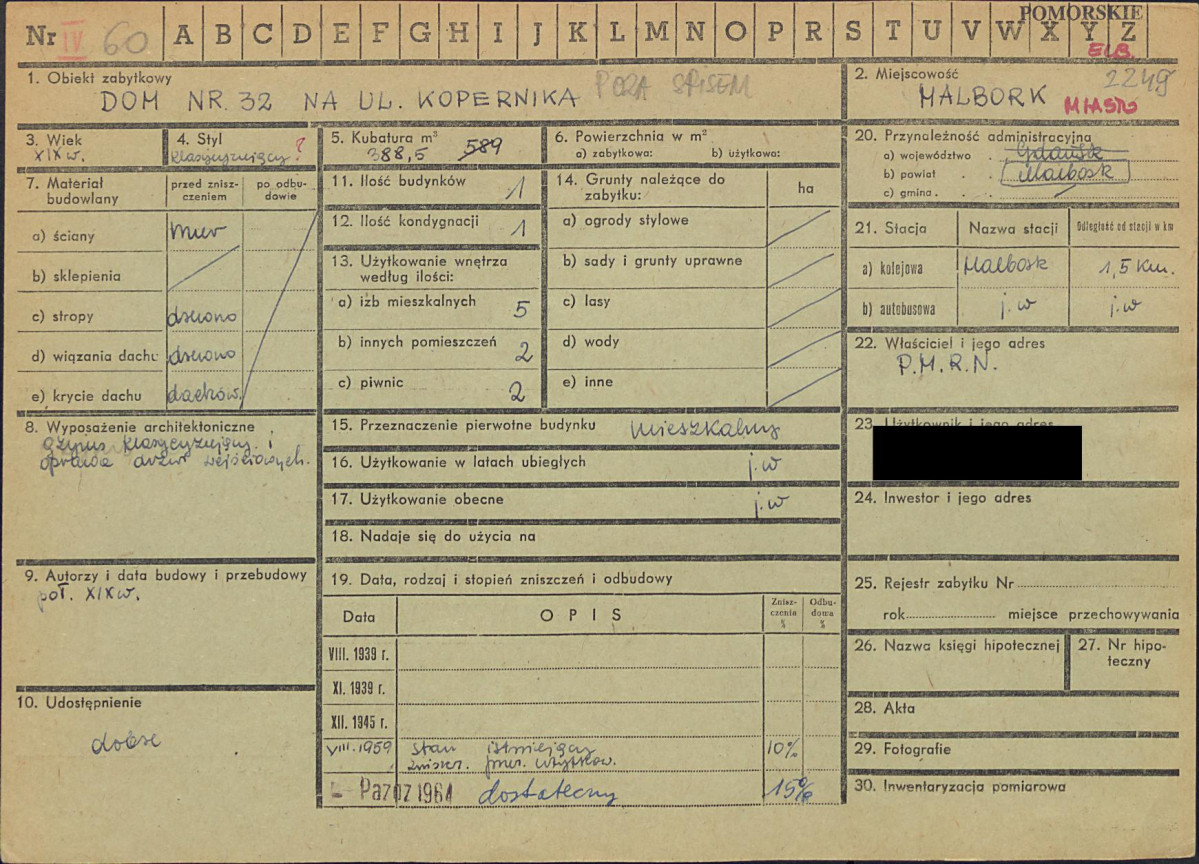 POMORSKIE
Nr IV 60 A B C D E F G H I J K L M N O P R S T U V W X Y Z
ELB.
1. Obiekt zabytkowy
DOM NR. 32 NA UL. KOPERNIKA
POZA SPISEM
2. Miejscowość
2249
MALBORK MIASTO
3. Wiek
XIX w.
4. Styl
klasycyzujący ?
5. Kubatura m³
388,5 589
6. Powierzchnia w m²
a) zabytkowa: b) użytkowa:
20. Przynależność administracyjna
a) województwo . Gdańsk
b) powiat . . Malbork
c) gmina . .
7. Materiał budowlany
przed zniszczeniem
po odbudowie
a) ściany mur
b) sklepienia
c) stropy drewno
d) wiązania dachu drewno
e) krycie dachu dachów.
11. Ilość budynków 1
12. Ilość kondygnacji 1
13. Użytkowanie wnętrza
według ilości:
a) izb mieszkalnych 5
b) innych pomieszczeń 2
c) piwnic 2
14. Grunty należące do
zabytku:
ha
a) ogrody stylowe
b) sady i grunty uprawne
c) lasy
d) wody
e) inne
21. Stacja Nazwa stacji Odległość od stacji w km
a) kolejowa Malbork 1,5 km.
b) autobusowa j.w j.w
22. Właściciel i jego adres
P.M.R.N.
8. Wyposażenie architektoniczne
gzyms klasycyzujący i
oprawa drzwi wejściowych.
15. Przeznaczenie pierwotne budynku mieszkalny
16. Użytkowanie w latach ubiegłych j.w
17. Użytkowanie obecne j.w
18. Nadaje się do użycia na
23. Użytkownik i jego adres
24. Inwestor i jego adres
9. Autorzy i data budowy i przebudowy
poł. XIX w.
19. Data, rodzaj i stopień zniszczeń i odbudowy
Data OPIS Zniszczenia % Odbudowa %
VIII. 1939 r.
XI. 1939 r.
XII. 1945 r.
VIII. 1959 stan istniejący 10%
zniszcz. przez użytkow.
Paźdz 1964 dostateczny 15%
25. Rejestr zabytku Nr
rok miejsce przechowywania
26. Nazwa księgi hipotecznej
27. Nr hipoteczny
10. Udostępnienie
dobre
28. Akta
29. Fotografie
30. Inwentaryzacja pomiarowa